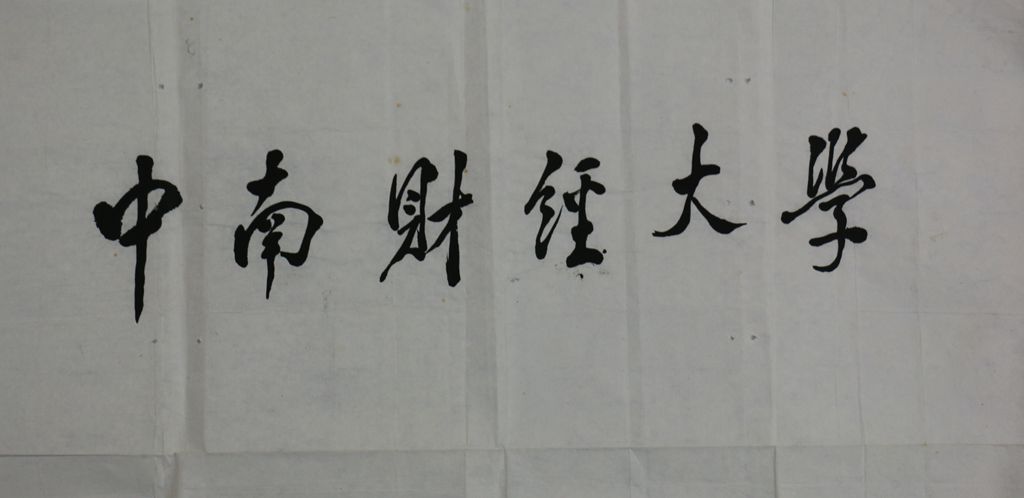 中南财經大學